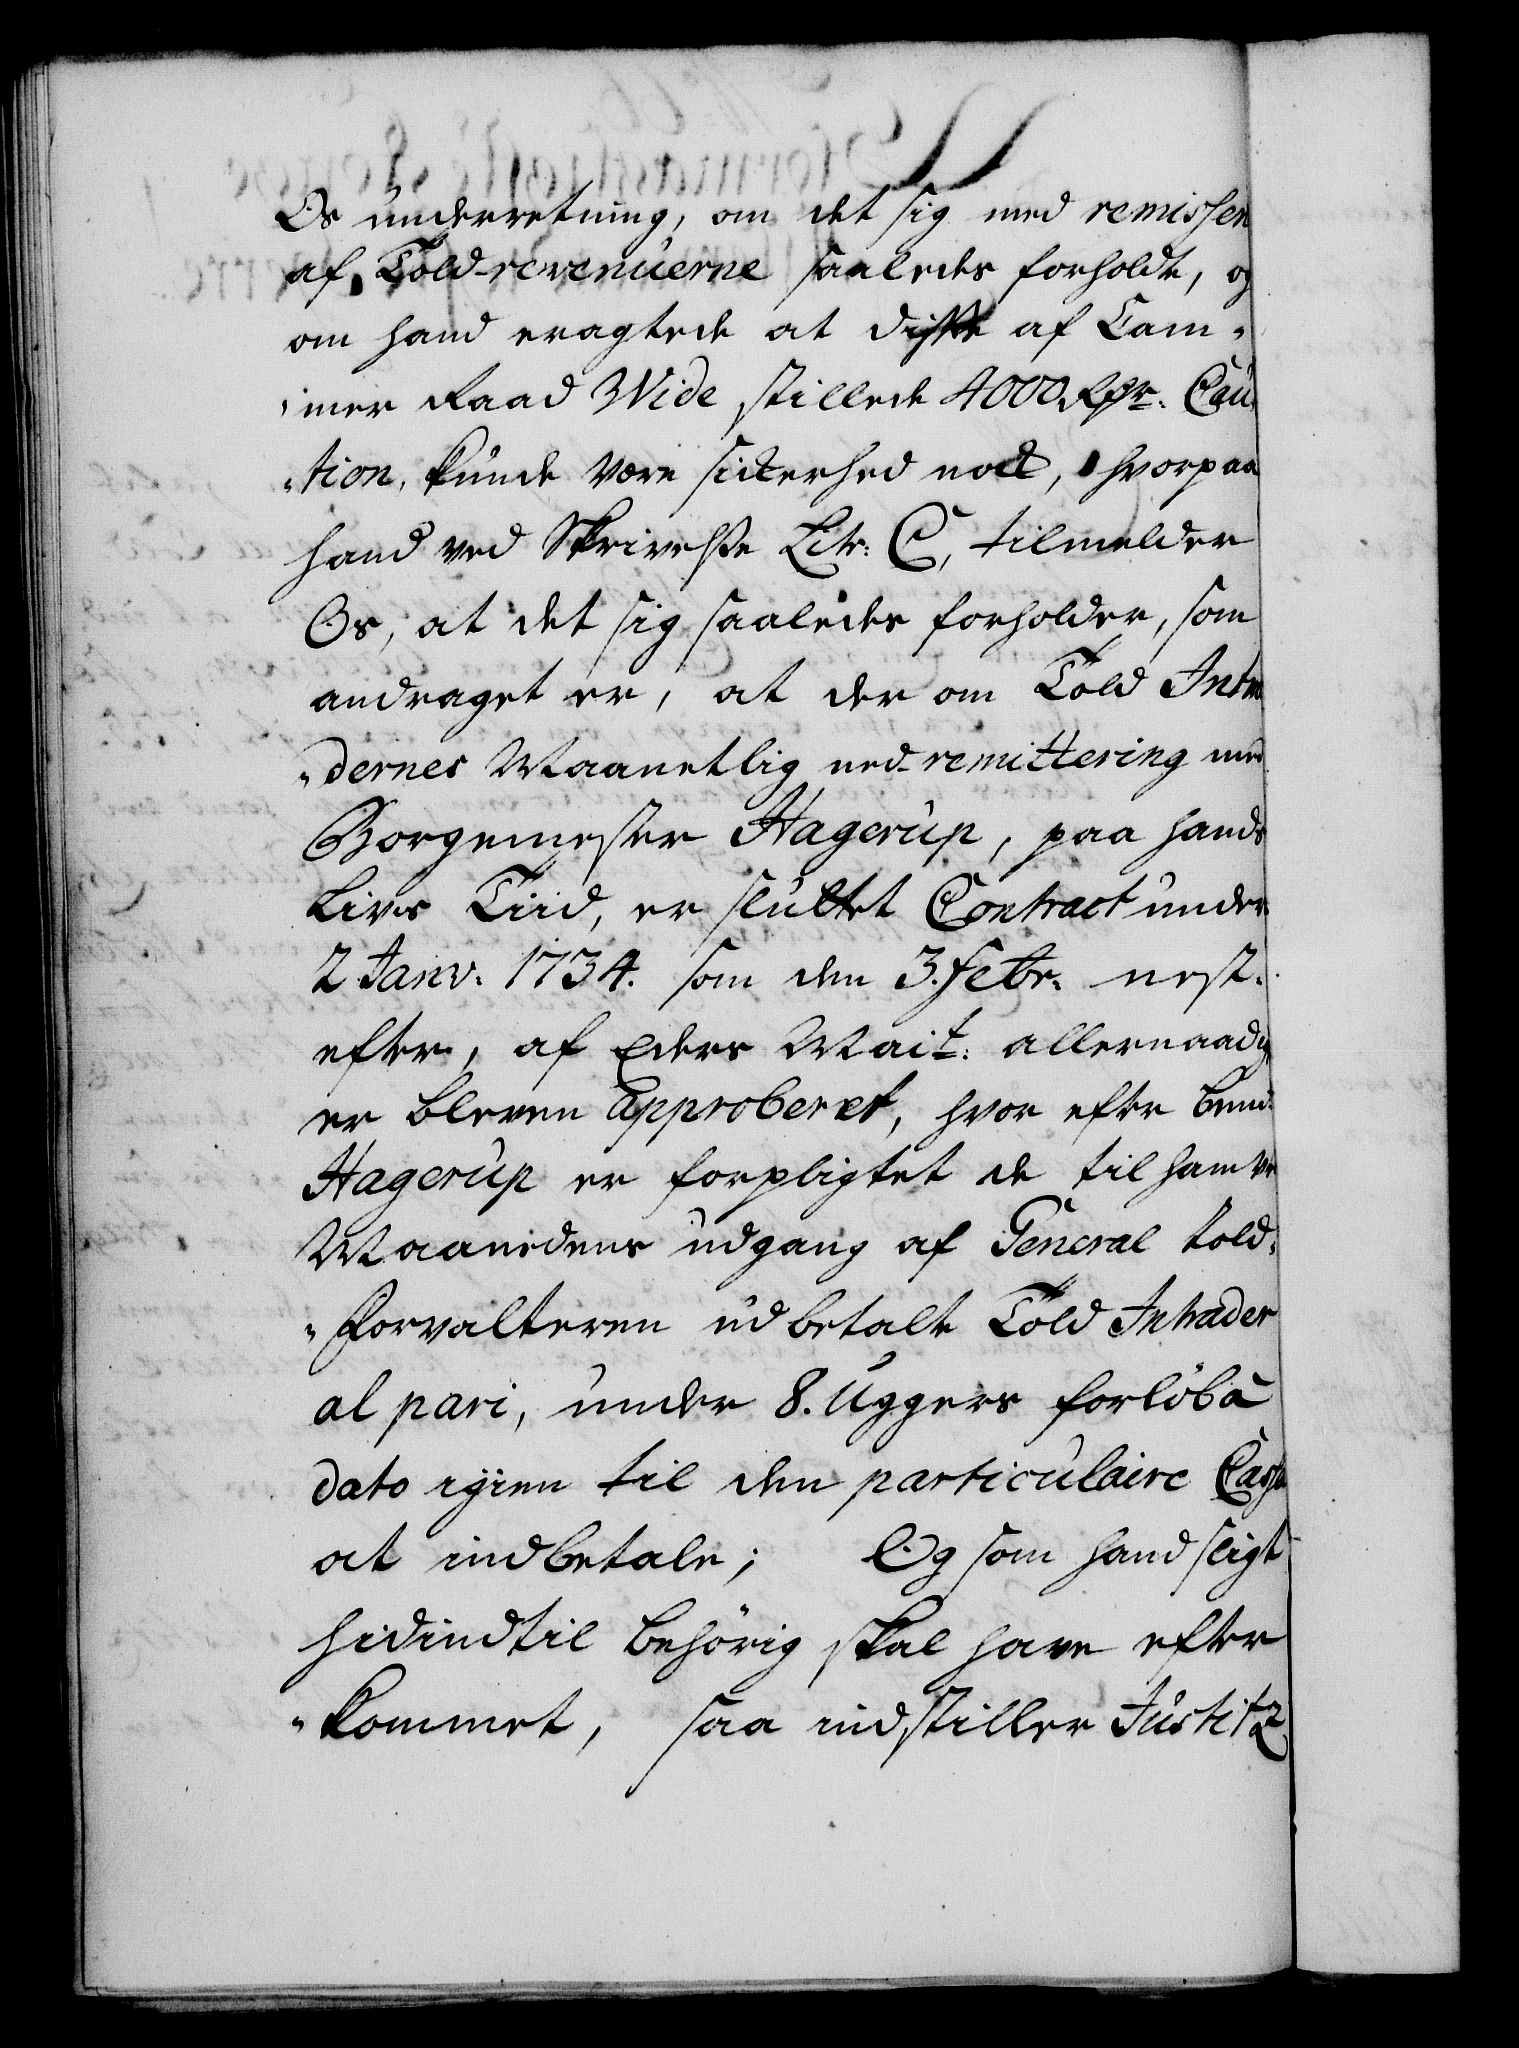 Os underretning, om det sig med remissen
af Told-revenuerne saaledes forholdt, og
om hand eragtede at diste af Cam-
-mer Raad Wide stillede 4000 Rdr. Cau-
-tion, kunde være sickerhed nock, hvorpaa
hand ved Skrivelse Litr: C, tilmelder
Os, at det sig saaledes forholder, som
andraget er, at der om Told Intra
-dernes Maanetlig ned-remittering med
Borgemester Hagerup, paa hands
Livs Tiid, er sluttet Contract under
2 Janv: 1734. som den 3. Febr: nest-
efter, af Eders Mait: allernaadigst
er bleven Approberet, hvor efter bem:
Hagerup er forpligtet de til ham ved
Maanedens udgang af General told-
-forvalteren udbetalte Told Intrader
al pari, under 8. Uggers forløb â
dato igien til den particulaire Cassa
at indbetale; Og som hand sligt
hidindtil behørig skal have efter
-kommet, saa indstiller Justitz